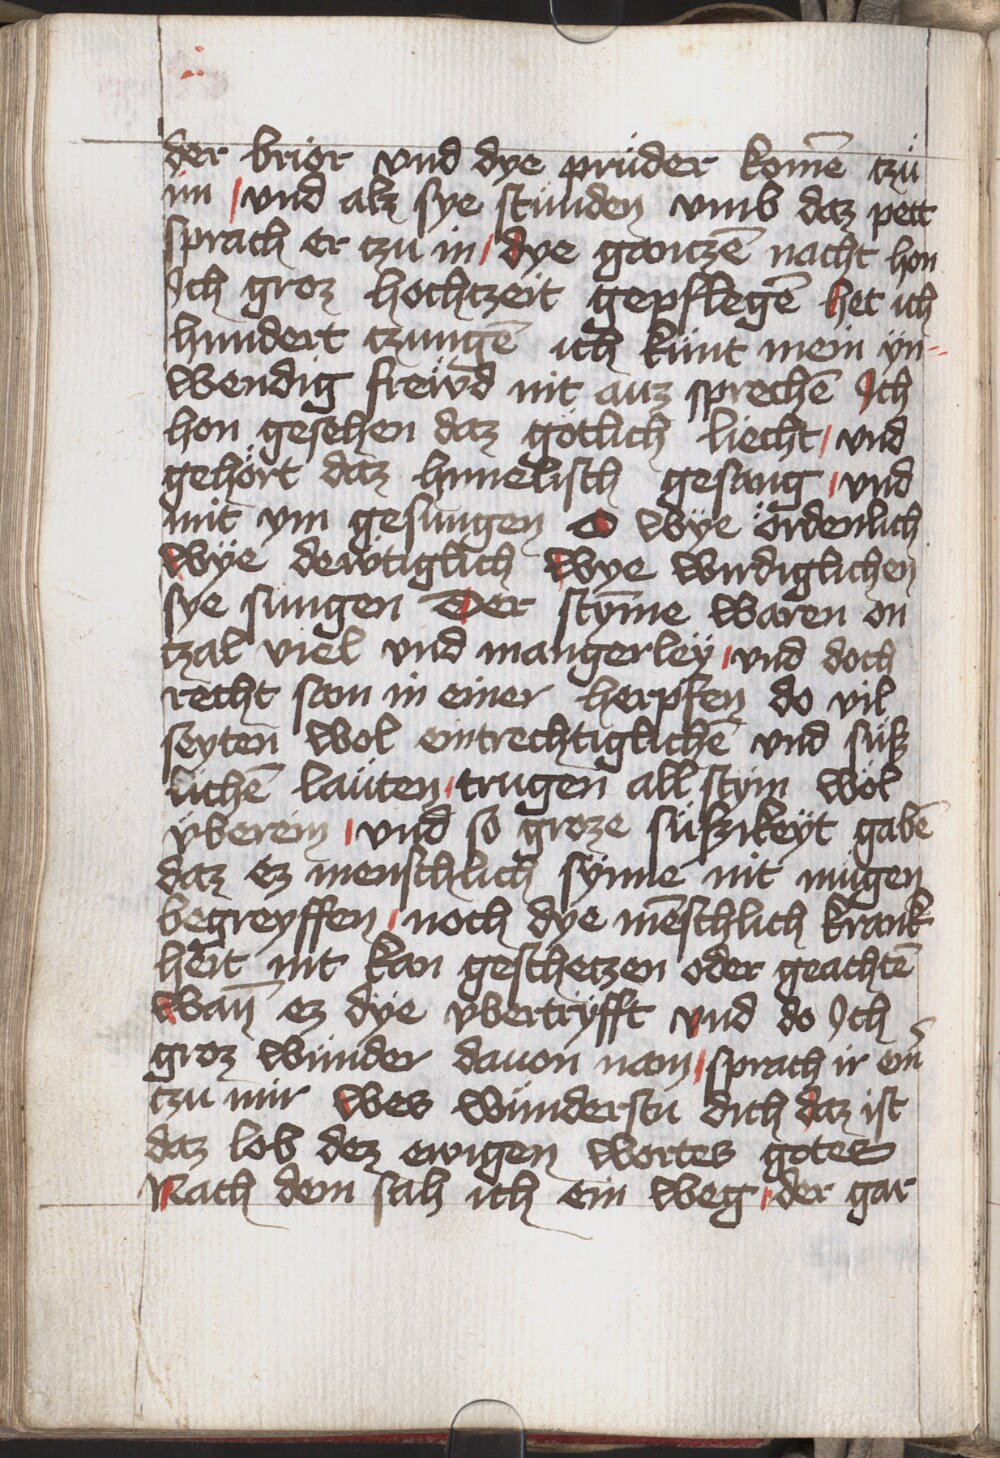 der brior vnd dye prüder komē tzü
im / vnd alz sye stünden vmb daz pett
sprach er tzu in / dye gantzē nacht hon
Ich groz hochtzeit gepflegē het ich
hundert tzungē ich künt mein yn-
wendig freẅd nit auz sprechē Ich
hon gesehen daz götlich liecht / vnd
gehört daz himelisch gesang / vnd
mit ym gesungen O wÿe ördenlich
wÿe dewtiglich wye wirdiglichen
sye sungen Der stȳme waren on
tzal viel vnd mangerleÿ / vnd doch
recht sam in einer herpfen do vil
seyten wol eintrechtiglichē vnd süß
lichē laüten / trugen all stym wol
ÿberein / vnd so groze süßikeyt gabē
daz ez menschlich synne nit mügen
begreyffen / noch dye mēschlich krank
heit nit kan geschetzen oder geachtē
wan̄ ez dÿe vbertryfft vnd do Ich
groz wunder dauon nam / sprach ir ein̄
tzu mir wes wünderstu dich daz ist
daz lob dez ewigen wortes gotes
Nach dem sah ich ein weg / der gar